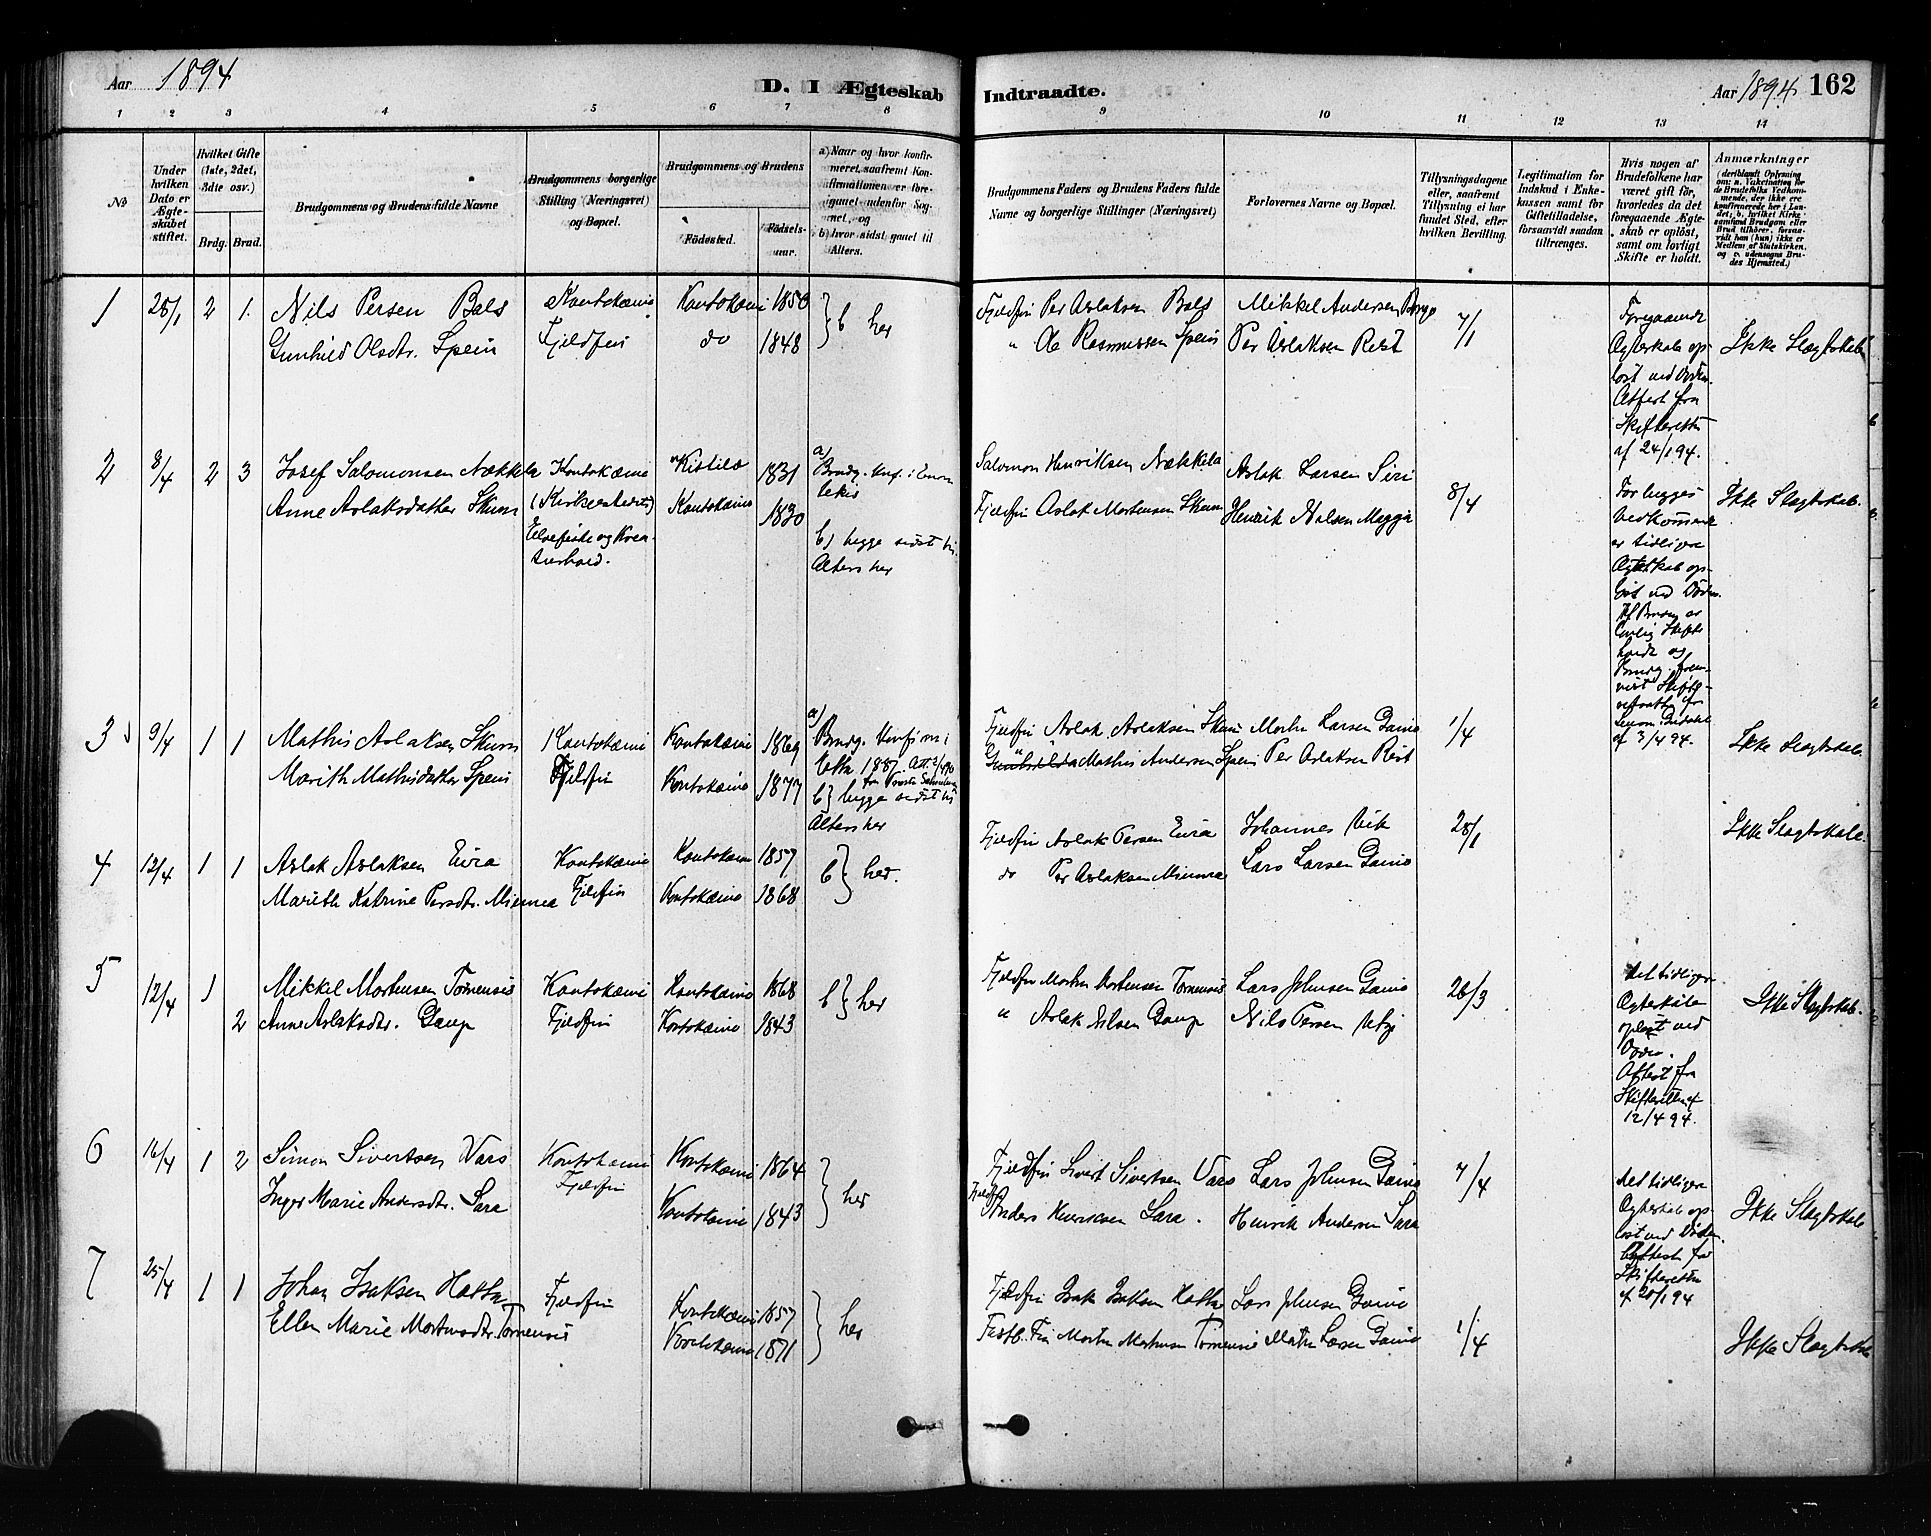 Aar 1894
D. I Ægteskab
Indtraadte.
Aar 1894 162
1 2 3 4 5 6 7 8 9 10 11 12 13 14
No
Under hvilken Dato er Ægteskabet stiftet.
Hvilket Gifte (1ste, 2det, 3die osv.)
Brdg. Brud.
Brudgommens og Brudens fulde Navne
Brudgommens borgerlige Stilling (Næringsvei) og Bopæl.
Brudgommens og Brudens
Fødested.
Fødsels-aar.
a) Naar og hvor konfirmeret, saafremt Konfirmationen er foregaaet udenfor Sognet, og
b) hvor sidst gaaet til Alters.
Brudgommens Faders og Brudens Faders fulde Navne og borgerlige Stillinger (Næringsvei)
Forlovernes Navne og Bopæl.
Tillysningsdagene eller, saafremt Tillysning ei har fundet Sted, efter hvilken Bevilling.
Legitimation for Indskud i Enkekassen samt for Giftetilladelse, forsaavidt saadan tiltrænges.
Hvis nogen af Brudefolkene har været gift før, hvorledes da det foregaaende Ægteskab er opløst, samt om lovligt Skifte er holdt.
Anmærkninger
1 25/1 2 1. Nils Persen Bals Koutokæino Koutokæino 1850 } b her Fjeldfin Per Aslaksen Bals Mikkel Andersen 7/1
Gunhild Olsdtr. Spein Fjeldfin do 1848 " Ole Rasmussen Spein Per Aslaksen Rist
Foregaaende
Ægteskab op-
løst ved Døden.
Attest fra
Skifteretten
af 24/1 94.
Ikke Slægtskab
2 8/4 2 3 Josef Salomonsen Nækkela Koutokæino Kistilo 1831 a) Brudg. konf. i Enon-
tekis Salomon Henriksen Nækkela Aslak Larsen Siri 8/4
Anne Aslaksdatter Skum (Kirkestedet) Koutokæino 1830 Fjeldfin Aslak Mortensen Skum Henrik Nilsen Magga
Elvefiske og Krea-
turhold.
b) begge sidst til
Alters her
Foreligges
er tidligere
Ægteskab op-
løst ved Døden.
af 3/4 94.
Ikke Slægtskab.
3 9/4 1 1 Mathis Aslaksen Skum Koutokæino Koutokæino 1869 a) Brudg. konfirm. i
Fjeldfin Aslak Aslaksen Skum Morten Larsen Gaino 1/4
Marith Mathisdatter Spein Fjeldfin Koutokæino 1877 b) begge sidst til
Alters her Mathis Andersen Spein Per Aslaksen Rist
Ikke Slægtskab
4 12/4 1 1 Aslak Aslaksen Eira Koutokæino Koutokæino 1857 b } her. Fjeldfin Aslak Persen Eira Johannes 28/1
Marith Katrine Persdtr. Mienna Fjeldfin Koutokæino 1868 do Per Aslaksen Mienna Lars Larsen Gaino
Ikke Slægtskab.
5 12/4 1 Mikkel Mortensen Tornensis Koutokæino Koutokæino 1868 b } her Fjeldfin Morten Mortensen Tornensis Lars Johnsen Gaino 26/3
2 Anne Aslaksdtr. Gaup Fjeldfin Koutokæino 1843 " Aslak Nilsen Gaup Nils Persen Utsi
Det tidligere
Ægteskab
opløst ved
Døden.
Attest fra
Skifteretten af
12/4 94.
Ikke Slægtskab.
6 16/4 1 2 Simon Sivertsen Vars Koutokæino Koutokæino 1864 } her Fjeldfin Sivert Sivertsen Vars Lars Johnsen Gaino 7/4
Inger Marie Andersdtr. Sara Fjeldfin Koutokæino 1843 Fjeldfin Anders Henriksen Sara. Henrik Andersen Sara
Det tidligere
Ægteskab op-
løst ved Døden.
Attest fra
Skifteretten
af 20/1 94
Ikke Slægtskab
7 25/4 1 1 Johan Isaksen Hatta Fjeldfin Koutokæino 1857 } her Fjeldfin Isak Isaksen Hatta Lars Johnsen Gaino 1/4
Ellen Marie Mortensdtr. Tornensis Koutokæino 1871 Fastb. Fin Morten Mortensen Tornensis Morten Larsen Gaino
Ikke Slægtskab